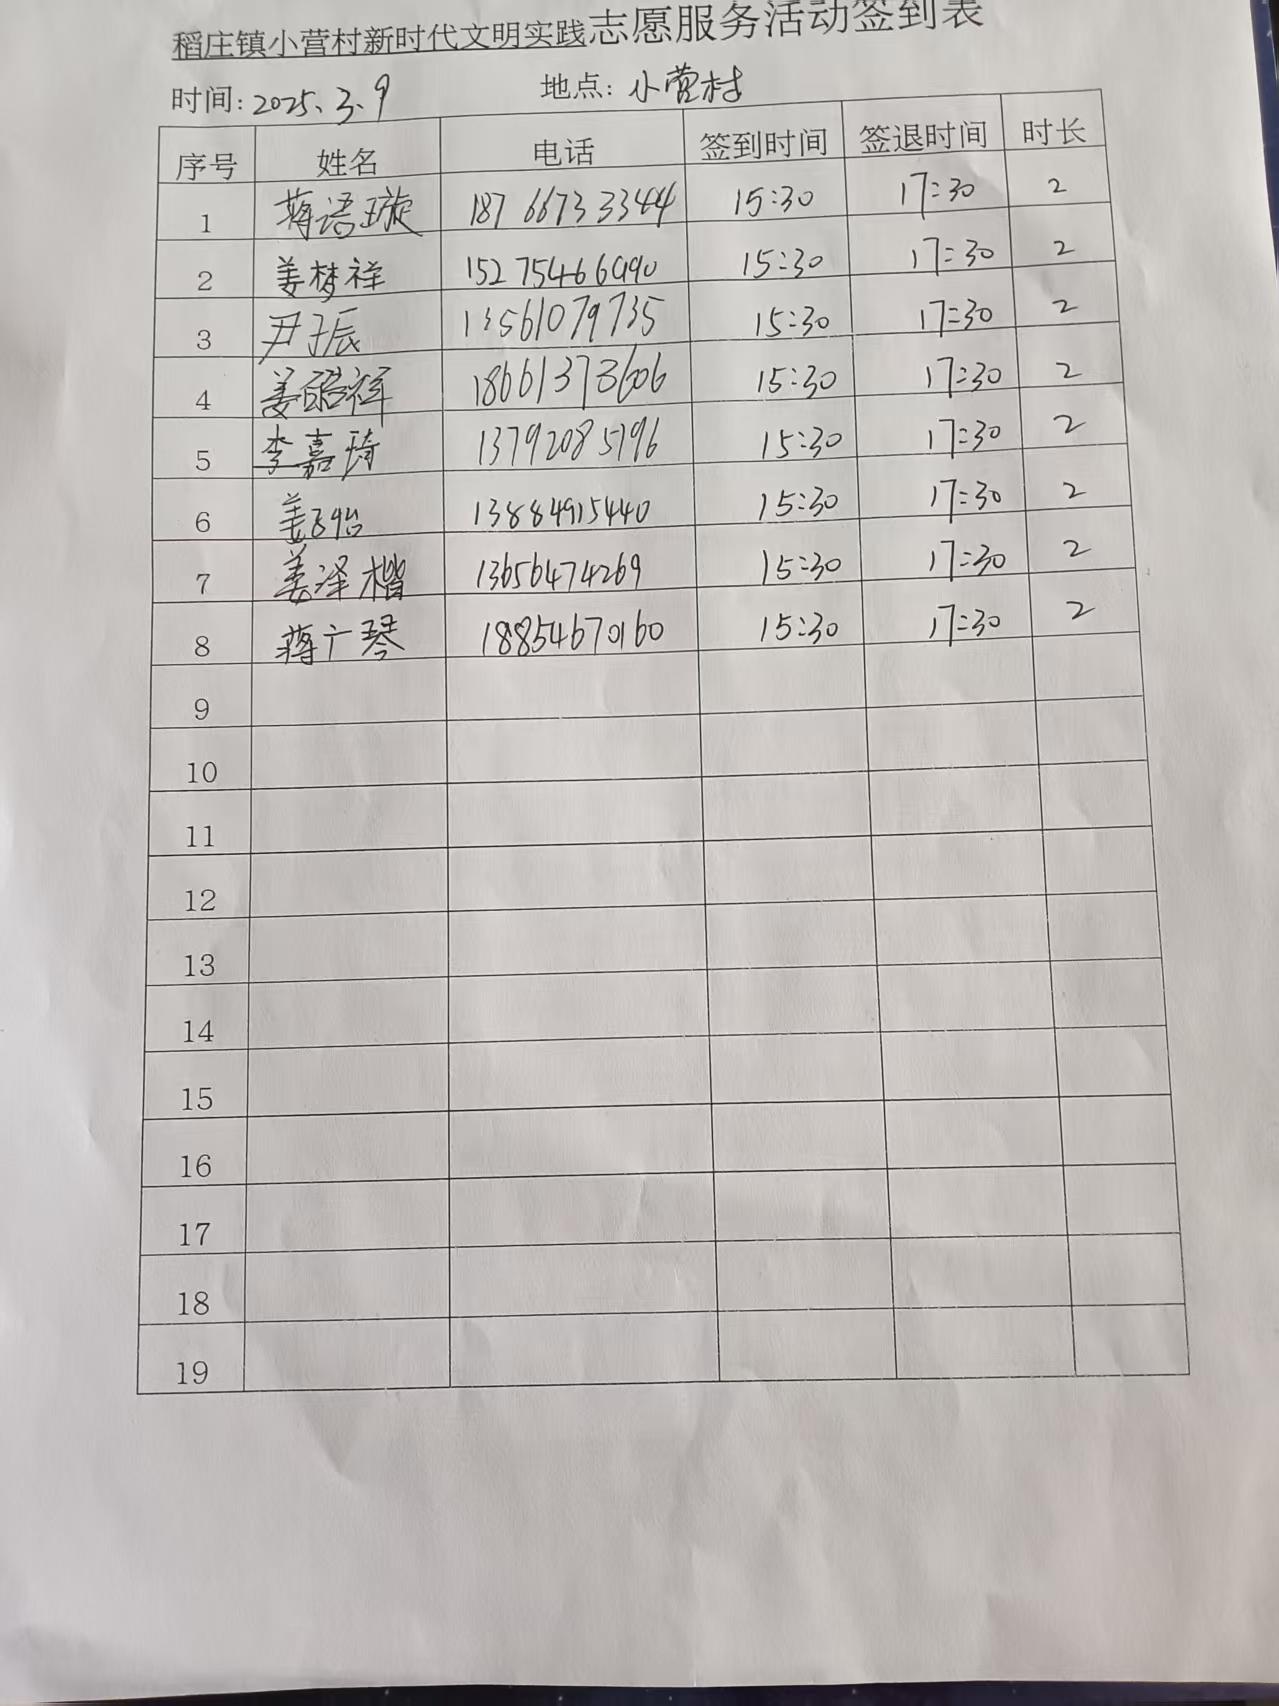 稻庄镇小营村新时代文明实践志愿服务活动签到表
时间: 2025.3.9 地点: 小营村
序号 姓名 电话 签到时间 签退时间 时长
1 蒋语璇 18766733344 15:30 17:30 2
2 姜梦祥 15275466990 15:30 17:30 2
3 尹于辰 13561079735 15:30 17:30 2
4 姜皓祥 18661373606 15:30 17:30 2
5 李嘉琦 13792085796 15:30 17:30 2
6 姜 13884915440 15:30 17:30 2
7 姜泽楷 13656474269 15:30 17:30 2
8 蒋广琴 18854670160 15:30 17:30 2
9
10
11
12
13
14
15
16
17
18
19